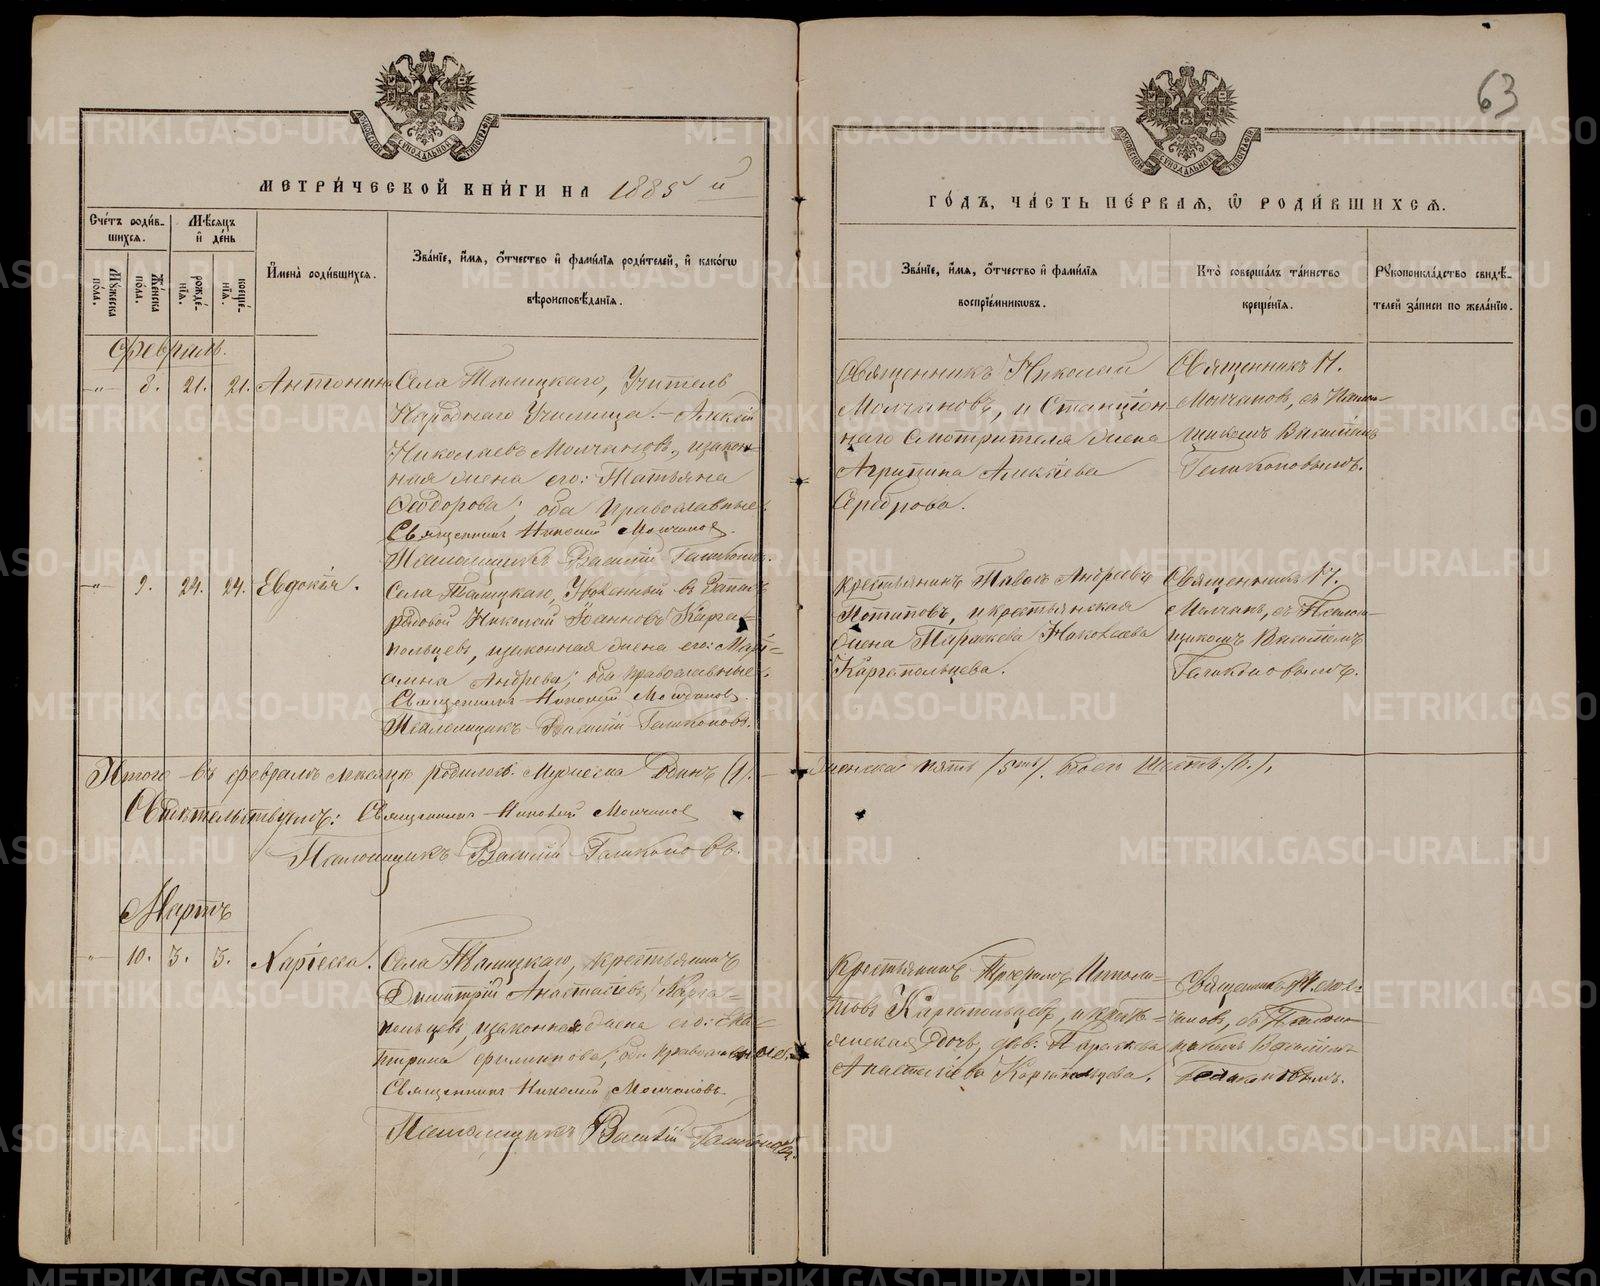 63
МЕТРИ́ЧЕСКОЙ КНИ́ГИ НА 1885 й
ГО́ДЪ, ЧА́СТЬ ПЕ́РВАЯ, Ѡ РОДИ́ВШИХСЯ.
Сче́тъ роди́в-
шихся.
Мѣ́сяцъ
и҆ де́нь
Мꙋжеска
по́ла.
Же́нска
по́ла.
рожде́-
нїя.
креще́-
нїя.
И҆мена̀ роди́вшихся.
Зва́нїе, и҆́мя, о҆́тчество и҆ фами́лїя роди́телей, и҆ како́гѡ
вѣроисповѣ́данїя.
Зва́нїе, и҆́мя, о҆́тчество и҆ фами́лїя
воспрїе́мникѡвъ.
Кто̀ соверша́лъ та́инство
креще́нїя.
Рꙋкоприкла́дство свидѣ́-
телей за́писи по жела́нїю.
Февраль.
-"- 8. 21. 21. Антонина
Села Талицкаго, Учитель
Народнаго Училища - Алексѣй
Николаевъ Молчановъ, и закон-
ная жена его: Татьяна
Ѳеодорова; оба православные.
Священникъ Николай Молчановъ.
Псаломщикъ Василій
Священникъ Николай
Молчановъ, и Станціон-
наго Смотрителя жена
Агрипина Алексіева
Среброва.
Священникъ Н.
Молчановъ, съ Псалом-
щикомъ Василіемъ
-"- 9. 24. 24. Евдокія.
Села Талицкаго, Уволенный въ Запасъ
рядовой Николай Іоанновъ Карга-
польцевъ, и законная жена его: Мар-
Андреева; оба православные.
Священникъ Николай Молчановъ.
Псаломщикъ Василій
Крестьянинъ Павелъ Андреевъ
Потаповъ, и крестьянская
жена Параскева Николаева
Каргапольцева.
Священникъ Н.
Молчановъ, съ Псалом-
щикомъ Василіемъ
Итого въ февралѣ мѣсяцѣ родилось Мужеска Одинъ (1). - Женска пять /5ть/. Всего Шесть. /6./.
Свидѣтельствуемъ: Священникъ Николай Молчановъ
Псаломщикъ Василій
Мартъ
-"- 10. 3. 3. Харіесса.
Села Талицкаго, крестьянинъ
Димитрій Анастасіевъ Карга-
польцевъ, и законная жена его: Ека-
терина Филиппова; оба православные.
Священникъ Николай Молчановъ.
Псаломщикъ Василій
Крестьянинъ Трофимъ Ипполи-
товъ Каргапольцевъ, и крестья-
янская Дочь, дев: Параскева
Анастасіева Каргапольцева.
Священникъ Н. Мол-
чановъ, съ Псалом-
щикомъ Василіемъ
METRIKI.GASO-URAL.RU